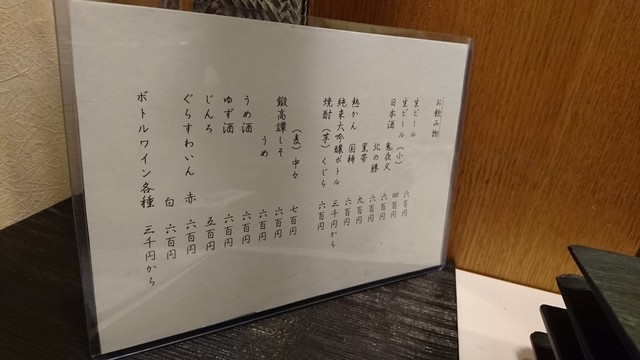 お飲み物
生ビール 六百円
生ビール(小) 四百円
日本酒 鬼夜叉 六百円
北の勝 六百円
黒帯 九百円
熱かん 国稀 六百円
純米大吟醸ボトル 三千円から
焼酎(芋)くじら 六百円
(麦)中々 七百円
鍛高譚しそ 六百円
うめ 六百円
うめ酒 六百円
ゆず酒 六百円
じんろ 五百円
ぐらすわいん 赤 六百円
白 六百円
ボトルワイン各種 三千円から